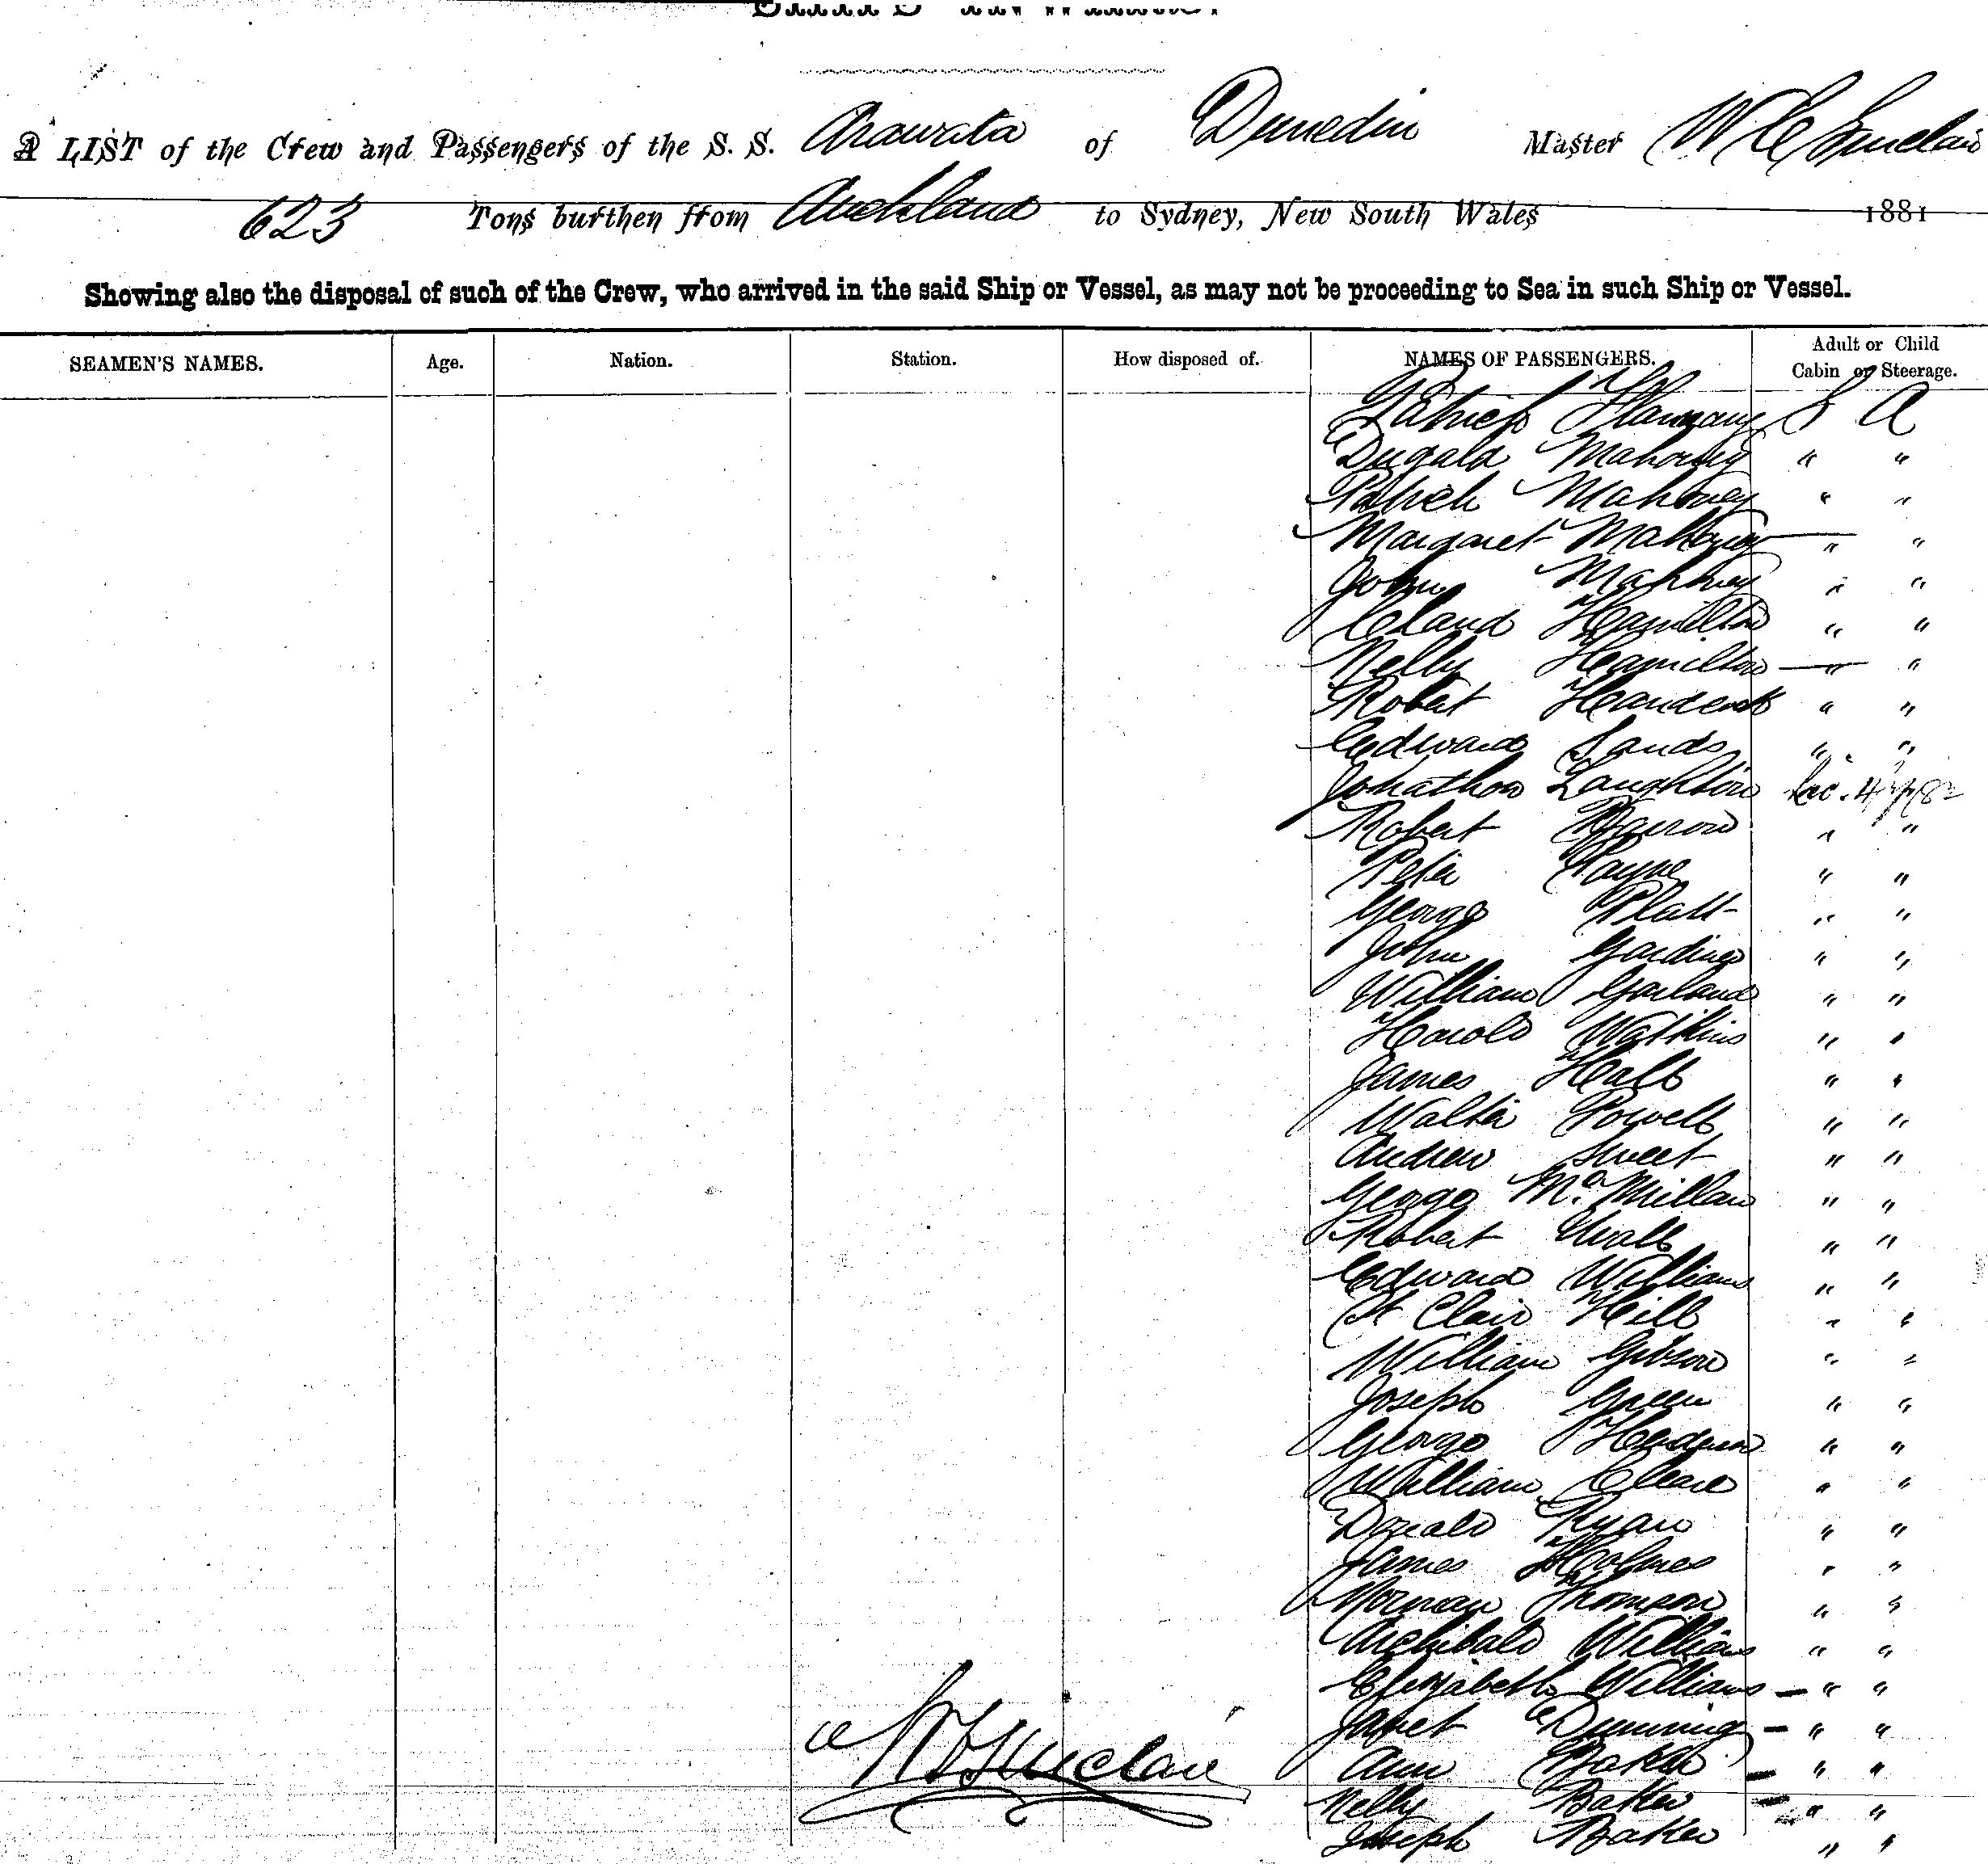 A LIST of the Crew and Passengers of the S. S. Arawata of Dunedin Master W C Sinclair
623 Tons burthen from Auckland to Sydney, New South Wales 1881
Showing also the disposal of such of the Crew, who arrived in the said Ship or Vessel, as may not be proceeding to Sea in such Ship or Vessel.
SEAMEN'S NAMES. Age. Nation. Station. How disposed of. NAMES OF PASSENGERS. Adult or Child Cabin or Steerage.
Patrick S A
Dugald Mahoney " "
Patrick Mahoney " "
Margaret Mahoney — " "
John Mahoney " "
Claud Hamilton " "
Nelly Hamilton — " "
Robert " "
Edward Sands " "
Jonathon Laughton
Robert " "
Peter Payne " "
George Platt " "
John Gardiner " "
William Garland " "
Harold Watkins " "
James Hall " "
Walter Powell " "
Andrew Sweet " "
George McMillan " "
Robert " "
Edward Williams " "
St Clair Hill " "
William Gibson " "
Joseph Green " "
George " "
William Cleare " "
Donald Ryan " "
James Holmes " "
Norman Thomson " "
Archibald Williams " "
Elizabeth Williams — " "
Janet Dunning — " "
Ann Baker — " "
Nelly Baker — " "
Joseph Baker " "
Sinclair